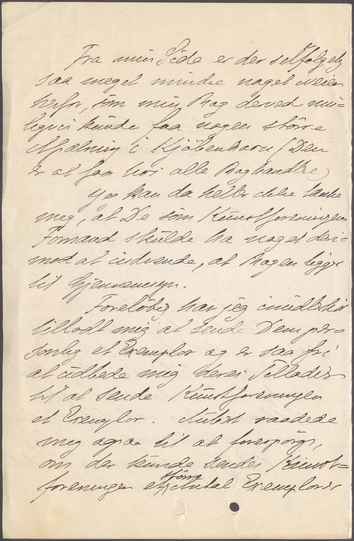 Fra min Side er der selfølgelig
saa meget mindre noget i veien
herfor, som min Bog derved mu-
ligvis kunde faa nogen større
Afsætning i Kjøbenhavn, (Den
er at faa hos alle Boghandlere)
Jeg kan da heller ikke tænke
mig, at De som Kunstforeningens
Formand skulde ha noget der i-
mod at indvende, at Bogen ligger
til Gjennemsyn.
Foreløbig har jeg imidlertid
tilladt mig at sende Dem per-
sonlig et Exemplar og er saa fri
at udbede mig deres Tilladelse
til at sende Kunstforeningen
et Exemplar. Aubert raadede
mig ogsaa til at forespørge,
om der kunde sendes Kunst-
foreningen et større Antal Exemplarer